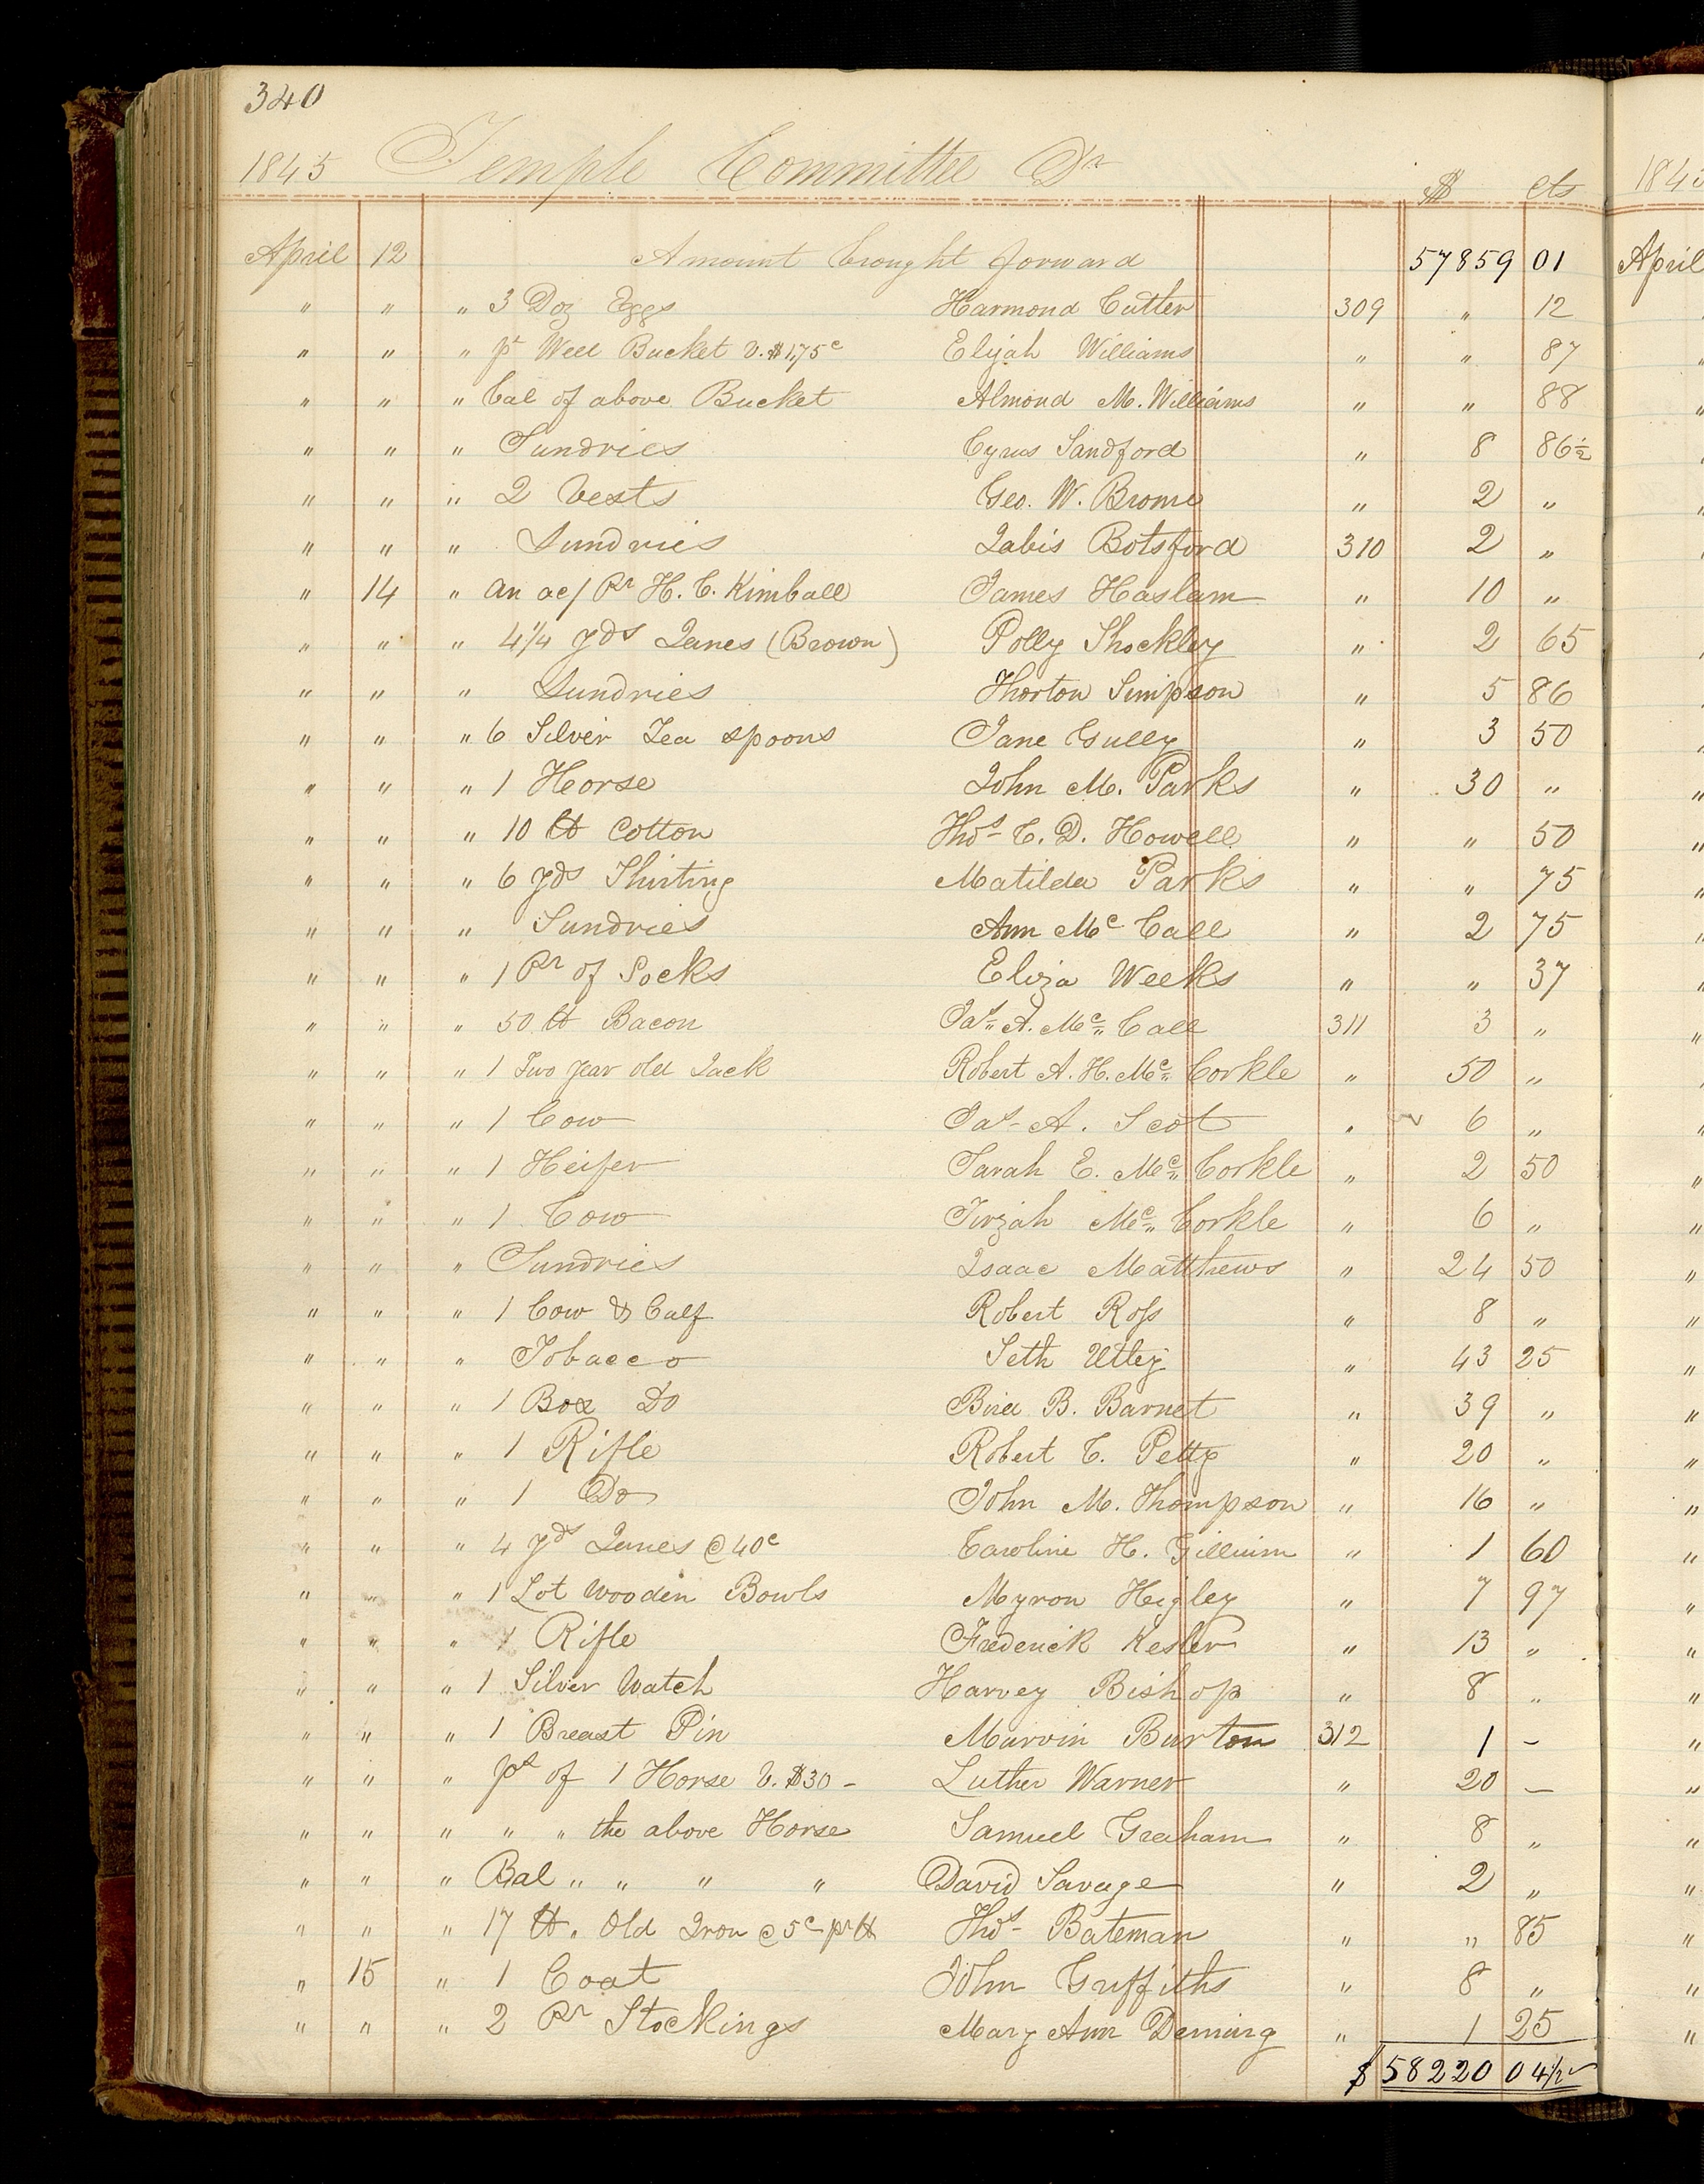 340
1845 Temple Committee Dr $ cts 184
April 12 Amount brought forward 57859 01 April
" " " 3 Doz Eggs Harmond Cutler 309 " 12
" " " pt Well Bucket v. $1,75c Elijah Williams " " 87
" " " bal of above Bucket Almond M. Williams " " 88
" " " Sundries Cyrus Sandford " 8 86½
" " " 2 Vests Geo. W. Brome " 2 "
" " " Sundries Jabis Botsford 310 2 "
" 14 " an ac/ Pr H. C. Kimball James Haslam " 10 "
" " " 4¼ yds Janes (Brown) Polly Shockley " 2 65
" " " Sundries Thorton Simpson " 5 86
" " " 6 Silver Tea spoons Jane Gully " 3 50
" " " 1 Horse John M. Parks " 30 "
" " " 10 lb Cotton Thos C. D. Howell " " 50
" " " 6 yds Shirting Matilda Parks " " 75
" " " Sundries Ann Mc Call " 2 75
" " " 1 Pr of Socks Eliza Weeks " " 37
" " " 50 lb Bacon Jas A. Mc Call 311 3 "
" " " 1 Two year old Jack Robert A. H. Mc Corkle " 50 "
" " " 1 Cow Jas A. Scot " 6 "
" " " 1 Heifer Sarah E. Mc Corkle " 2 50
" " " 1 Cow Tirzah Mc Corkle " 6 "
" " " Sundries Isaac Matthews " 24 50
" " " 1 Cow & Calf Robert Ross " 8 "
" " " Tobacco Seth Utley " 43 25
" " " 1 Box Do Bird B. Barnet " 39 "
" " " 1 Rifle Robert C. Petty " 20 "
" " " 1 Do John M. Thompson " 16 "
" " " 4 yds Janes @ 40c Caroline H. Gillium " 1 60
" " " 1 Lot Wooden Bowls Myron Higley " 7 97
" " " 1 Rifle Frederick Kesler " 13 "
" " " 1 Silver Watch Harvey Bishop " 8 "
" " " 1 Breast Pin Marvin Burton 312 1 –
" " " pt of 1 Horse v. $30 – Luther Warner " 20 –
" " " " " the above Horse Samuel Graham " 8 "
" " " Bal " " " " David Savage " 2 "
" " " 17 lb. Old Iron @ 5c pr lb Thos Bateman " " 85
" 15 " 1 Coat John Griffiths " 8 "
" " " 2 Pr Stockings Mary Ann Deming " 1 25
$ 58220 04½